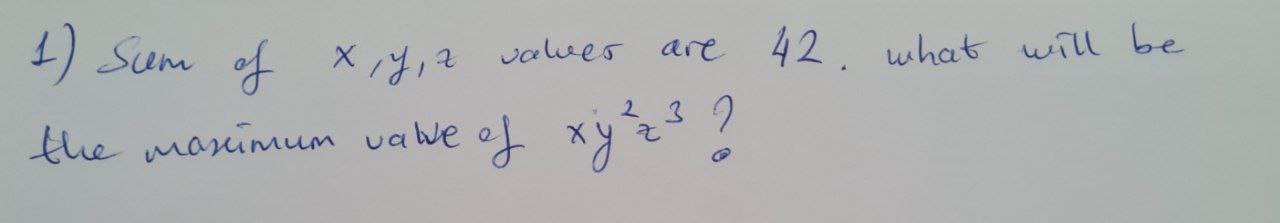 1) Sum of x,y,z values are 42. what will be
the maximum value of xy²z³?